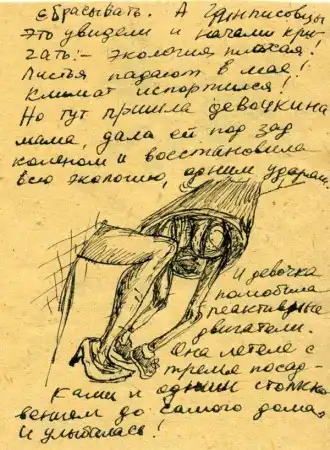 сбрасывать. А Гринписовцы
это увидели и начали кри-
чать:- экология плохая!
Листья падают в мае!
Климат испортился!
Но тут пришла девочкина
мама, дала ей под зад
коленом и восстановила
всю экологию, одним ударом,
И девочка
полюбила
реактивные
двигатели.
Она летела с
тремя посад-
ками и одним столкно
вением до самого дома,
И улыбалась!